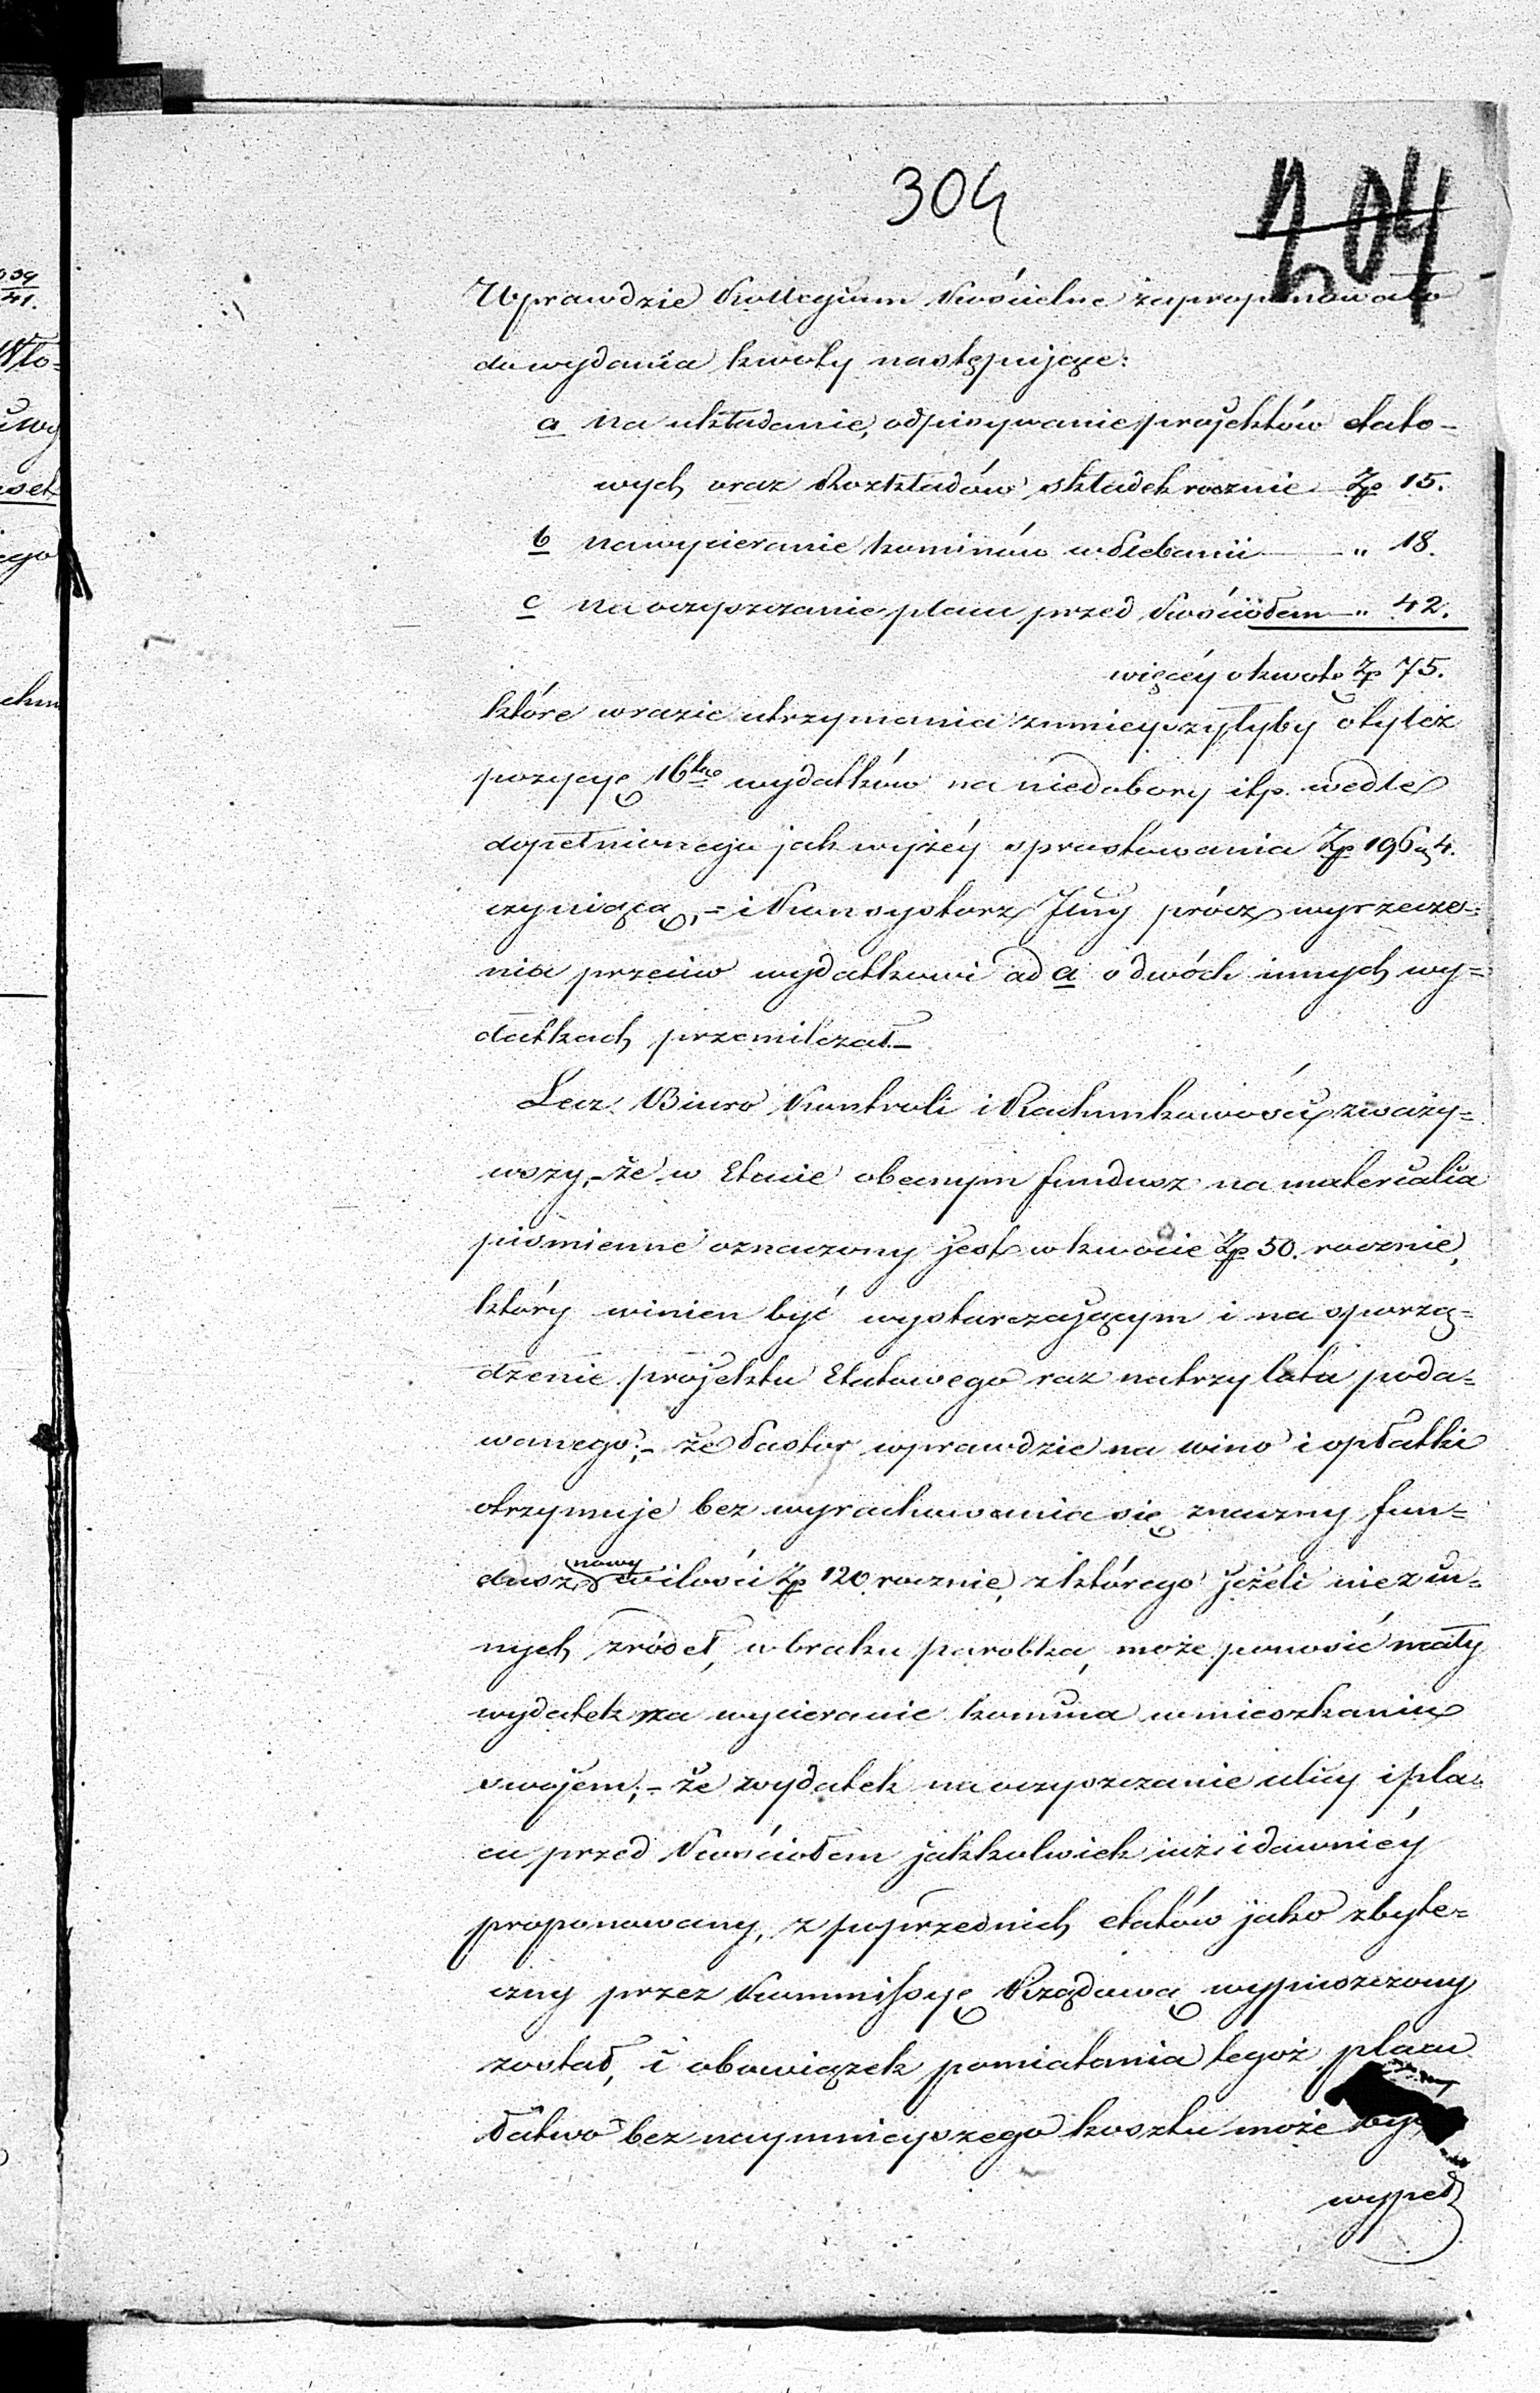 304
204
Wprawdzie Kollegium Kościelne zaproponowało
do wydania kwoty następujące:
a na układanie, odpisywanie projektów etato-
wych oraz Rozkładów składek rocznie Zp 15.
b na wycieranie kominów w Plebanii — " 18.
c na oczyszczanie placu przed Kościołem — " 42.
więcéy o kwotę Zp 75.
które w razie utrzymania zmnieyszyłyby o tyleż
pozycyę 16tą wydatków na niedobory itp. wedle
dopełnionego jak wyżéy sprostowania Zp 196 g 4.
czyniącą, – i Konsystorz Jlny prócz wyrzecze-
nia przeciw wydatkowi ad a o dwóch innych wy=
datkach przemilczał. –
Lecz Biuro Kontroli i Rachunkowości zważy=
wszy, – że w Etacie obecnym fundusz na materialia
piśmienne oznaczony jest w kwocie Zp 50. rocznie,
który winien być wystarczającym i na sporzą=
dzenie projektu Etatowego raz na trzy lata poda=
wanego; – że Pastor wprawdzie na wino i opłatki
otrzymuje bez wyrachowania się znaczny fun=
dusz nowy w ilości Zp 120 rocznie, z którego jeżeli nie z in=
nych źródeł, w braku parobka, może ponosić mały
wydatek na wycieranie komina w mieszkaniu
swojem; – że wydatek na oczyszczanie ulicy i pla=
cu przed Kościołem jakkolwiek już i dawniéy
proponowany, z poprzednich etatów jako zbyte=
czny przez Kommissyę Rządową wypuszczony
został, i obowiązek pomiatania tegoż placu
łatwo bez naymnieyszego kosztu może być
wypeł